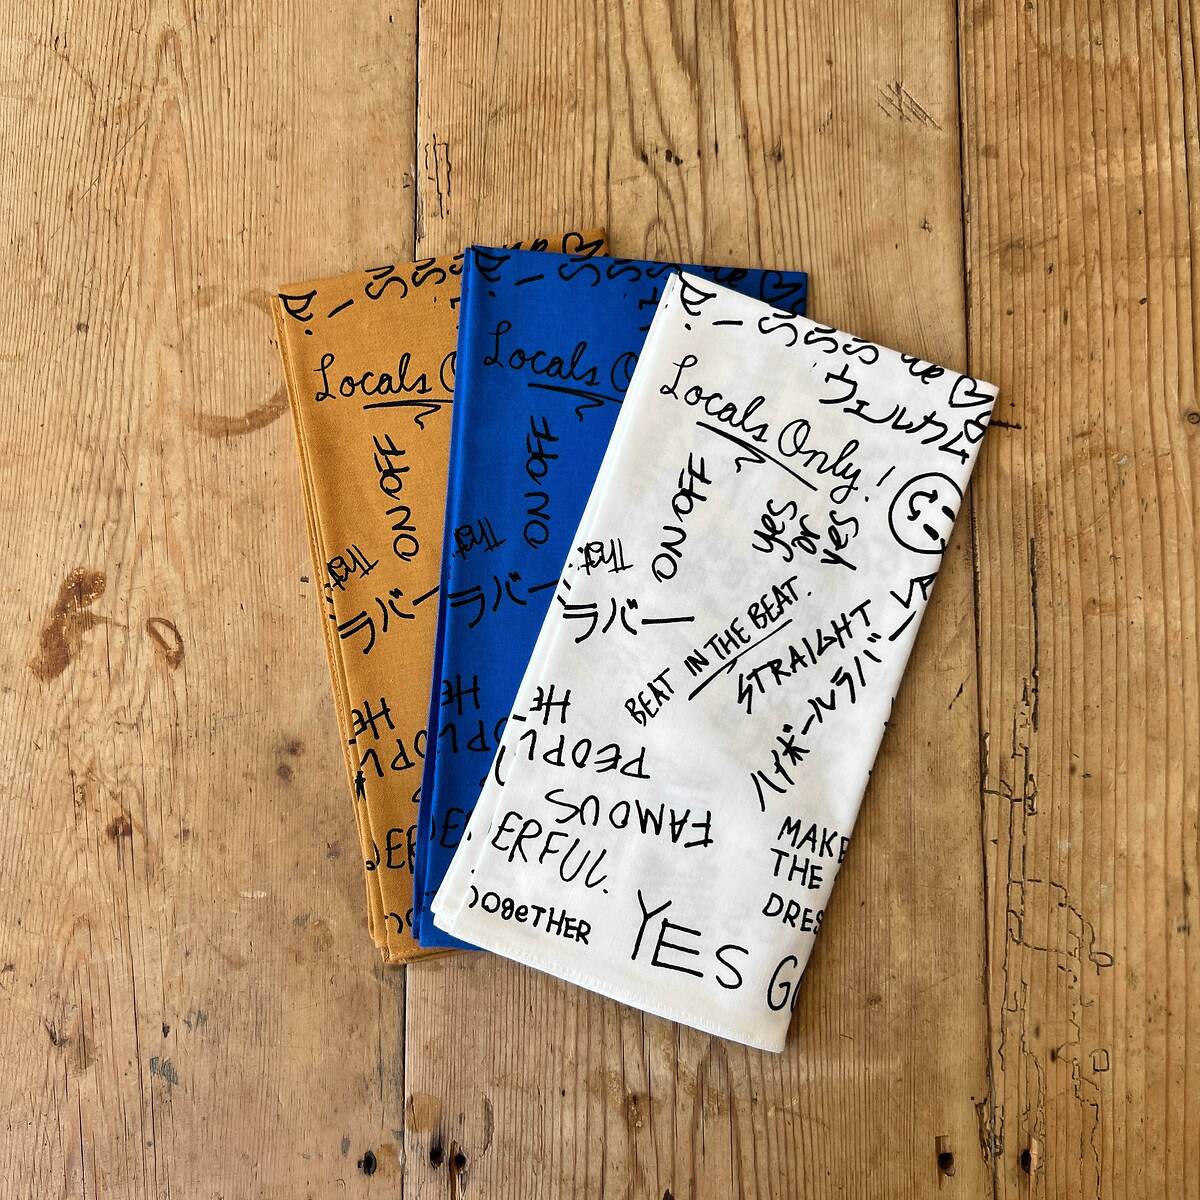 Locals
ON OFF
ラバー
Locals
ON OFF
ラバー
ウェルカム
Locals Only!
ON OFF
yes
or
yes
That
ラバー
BEAT IN THE BEAT.
STRAIGHT
ハイボールラバー
HE
PEOPL
FAMOUS
ERFUL.
TOGETHER
YES
MAKE
THE
DRES